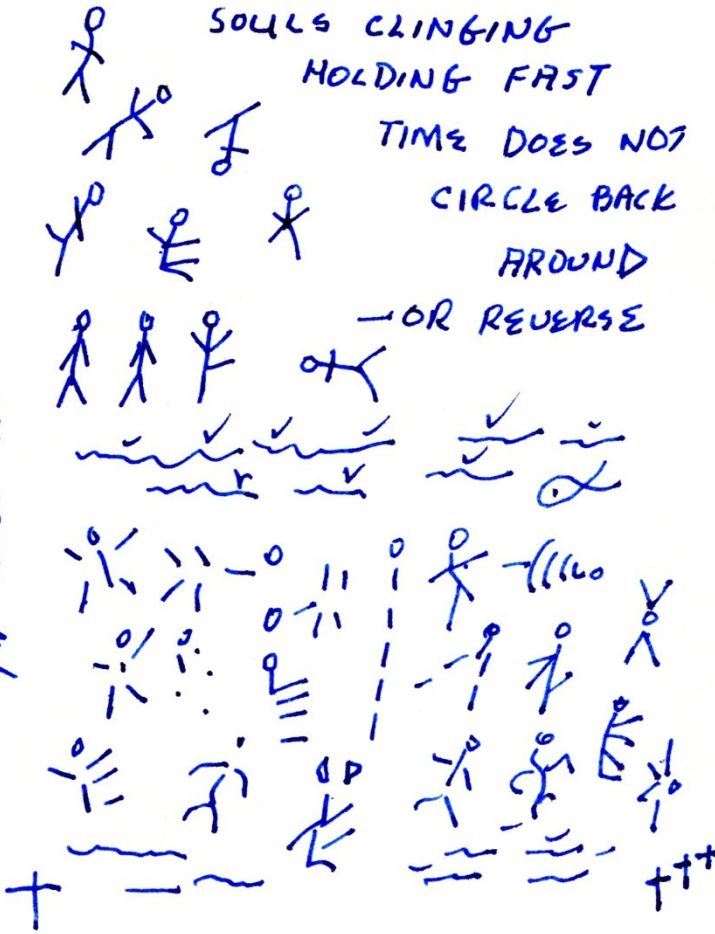 SOULS CLINGING
HOLDING FAST
TIME DOES NOT
CIRCLE BACK
AROUND
—OR REVERSE